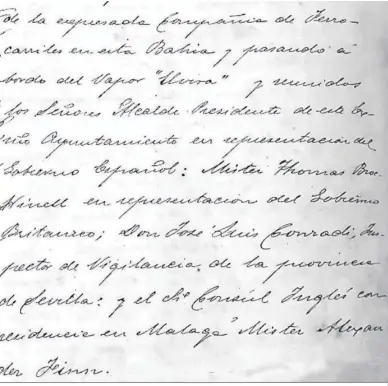 de la expresada Compañia de Ferro-
carriles en esta Bahia y pasando á
bordo del Vapor "Elvira" y reunidos
los Señores Alcalde Presidente de este
Ayuntamiento en representación del
Gobierno Español: Mister Thomas
en representación del Gobierno
Britanico; Don José Luis Conradi, Ins-
pector de Vigilancia de la provincia
de Sevilla: y el Sr. Consúl Inglés con
residencia en Malaga Mister Alexan
der Finn.